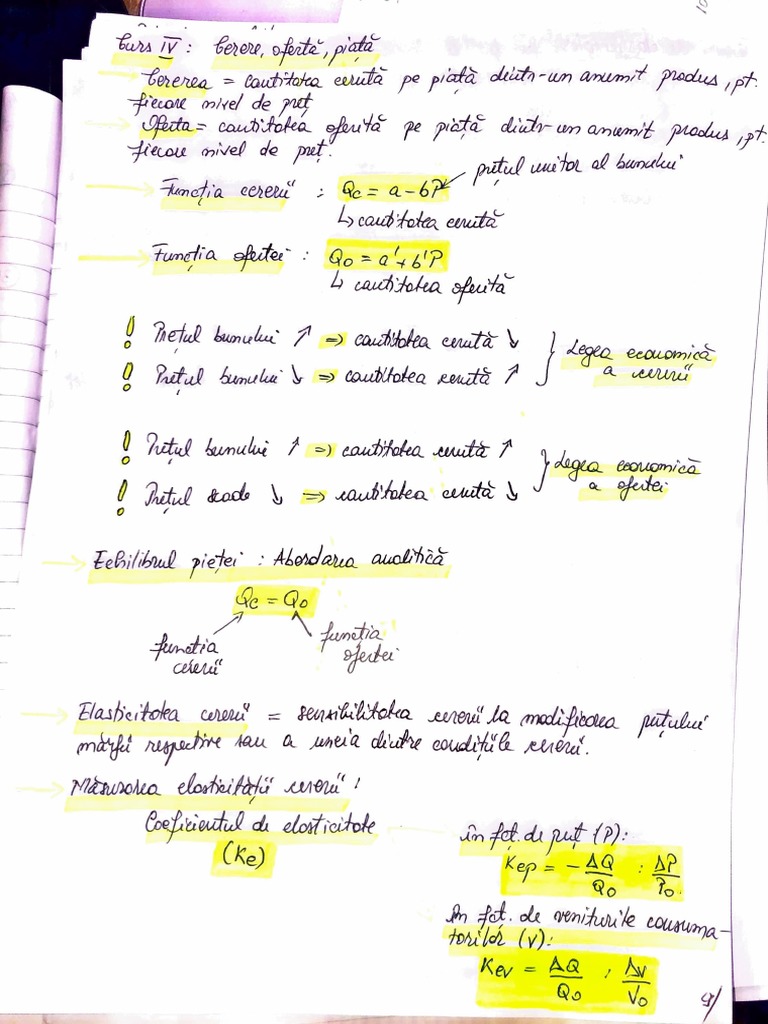 Curs IV: Cerere, ofertă, piață
Cererea = cantitatea cerută pe piață dintr-un anumit produs, pt.
fiecare nivel de preț
Oferta = cantitatea oferită pe piață dintr-un anumit produs, pt.
fiecare nivel de preț.
Funcția cererii : Qc = a - bP prețul unitar al bunului
↳ cantitatea cerută
Funcția ofertei : Qo = a' + b'P
↳ cantitatea oferită
! Prețul bunului ↗ => cantitatea cerută ↘
! Prețul bunului ↘ => cantitatea cerută ↗
} Legea economică
a cererii
! Prețul bunului ↗ => cantitatea cerută ↗
! Prețul scade ↘ => cantitatea cerută ↘
} Legea economică
a ofertei
→ Echilibrul pieței : Abordarea analitică
Qc = Qo
funcția
cererii
funcția
ofertei
→ Elasticitatea cererii = sensibilitatea cererii la modificarea prețului
mărfii respective sau a uneia dintre condițiile cererii.
→ Măsurarea elasticității cererii:
Coeficientul de elasticitate
(Ke)
în fct. de preț (P):
Kep = - ΔQ/Q0 : ΔP/P0
în fct. de veniturile consuma-
torilor (V):
Kev = ΔQ/Q0 : ΔV/V0